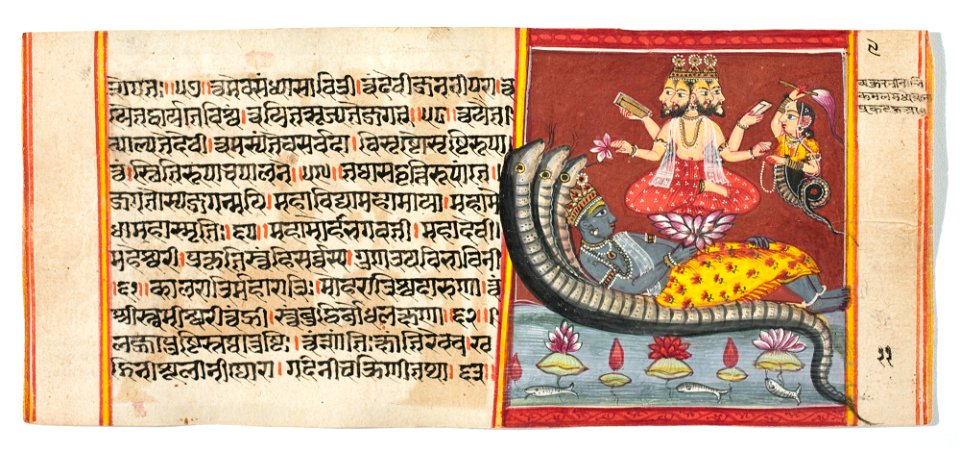 शेषतः॥५७॥त्वमेवसंध्यासावित्री।त्वंदेवीजननीपरा।त्व
यैतद्धार्यतेविश्वं।त्वयैतत्सृज्यतेजगत्॥५८॥त्वयैत
त्पाल्यतेदेवी।त्वमत्स्यंतेचसर्वदा।विसृष्टौसृष्टिरूपा
त्वंस्थितिरूपाचपालने॥५९॥तथासंहृतिरूपांते।
जगतोस्यजगन्मयि।महाविद्यामहामाया।महामे
धामहास्मृतिः॥६०॥महामोहाभगवती।महादेवी
महेश्वरी।प्रकृतिस्त्वंहिसर्वस्य।गुणत्रयविभाविनी
।६१॥कालरात्रिर्महारात्रिः।मोहरात्रिश्चदारुणा।त्वं
श्रीस्त्वमीश्वरीत्वंह्री।स्त्वंबुद्धिर्बोधलक्षणा॥६२॥
लज्जापुष्टिस्तथातुष्टिः।त्वंशांतिःक्षांतिरेवच।ख
ड्गिनीशूलिनीघोरा।गदिनीचक्रिणीतथा।६३॥
११